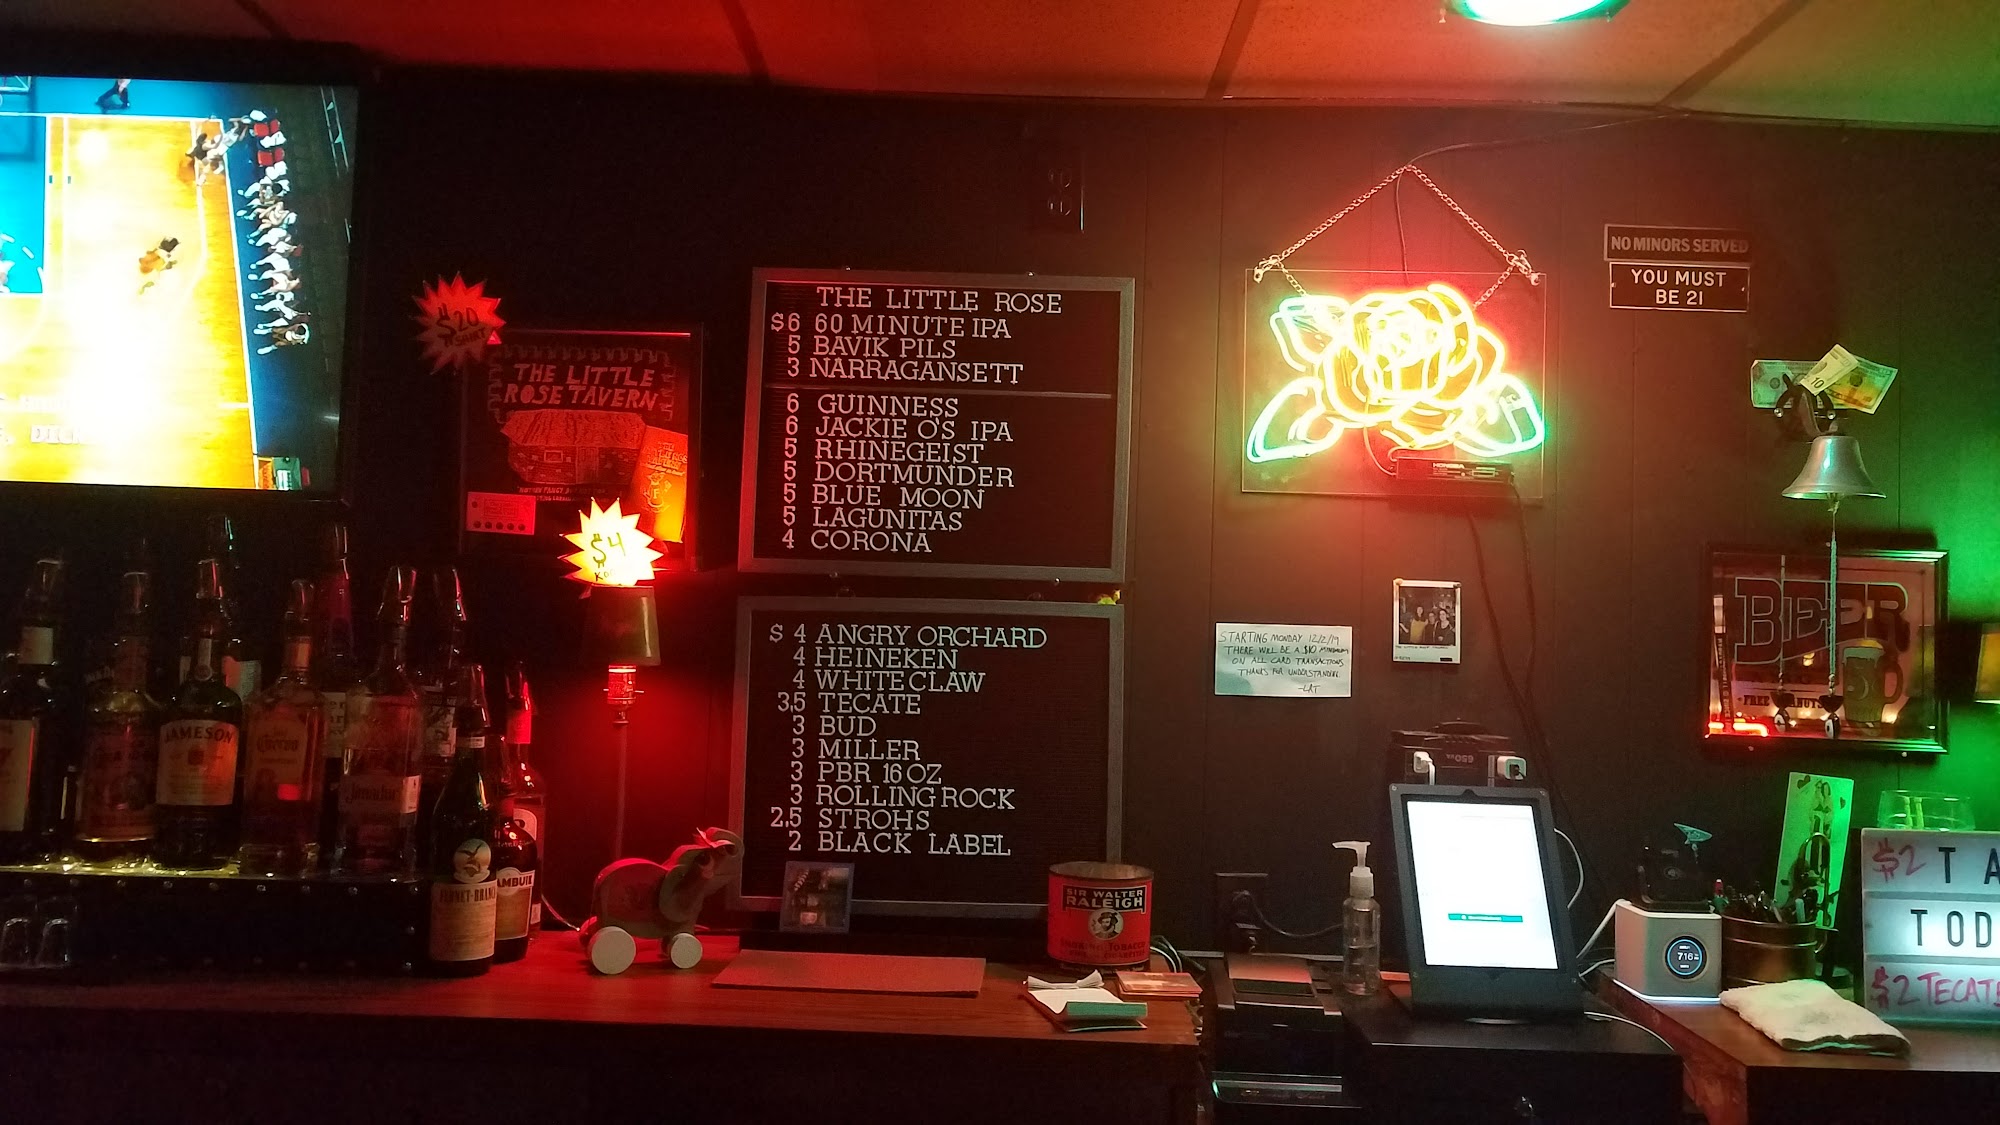 $20
THE LITTLE
ROSE TAVERN
$4
THE LITTLE ROSE
$6 60 MINUTE IPA
5 BAVIK PILS
3 NARRAGANSETT
6 GUINNESS
6 JACKIE O'S IPA
5 RHINEGEIST
5 DORTMUNDER
5 BLUE MOON
5 LAGUNITAS
4 CORONA
$ 4 ANGRY ORCHARD
4 HEINEKEN
4 WHITE CLAW
3.5 TECATE
3 BUD
3 MILLER
3 PBR 16 OZ
3 ROLLING ROCK
2.5 STROHS
2 BLACK LABEL
NO MINORS SERVED
YOU MUST
BE 21
STARTING MONDAY 12/2/19
THERE WILL BE A $10 MINIMUM
ON ALL CARD TRANSACTIONS
THANKS FOR UNDERSTANDING.
-LRT
BEER
JAMESON
FERNET-BRANCA
SIR WALTER
RALEIGH
SMOKING TOBACCO
716
$2 TA
TOD
$2 TECATE